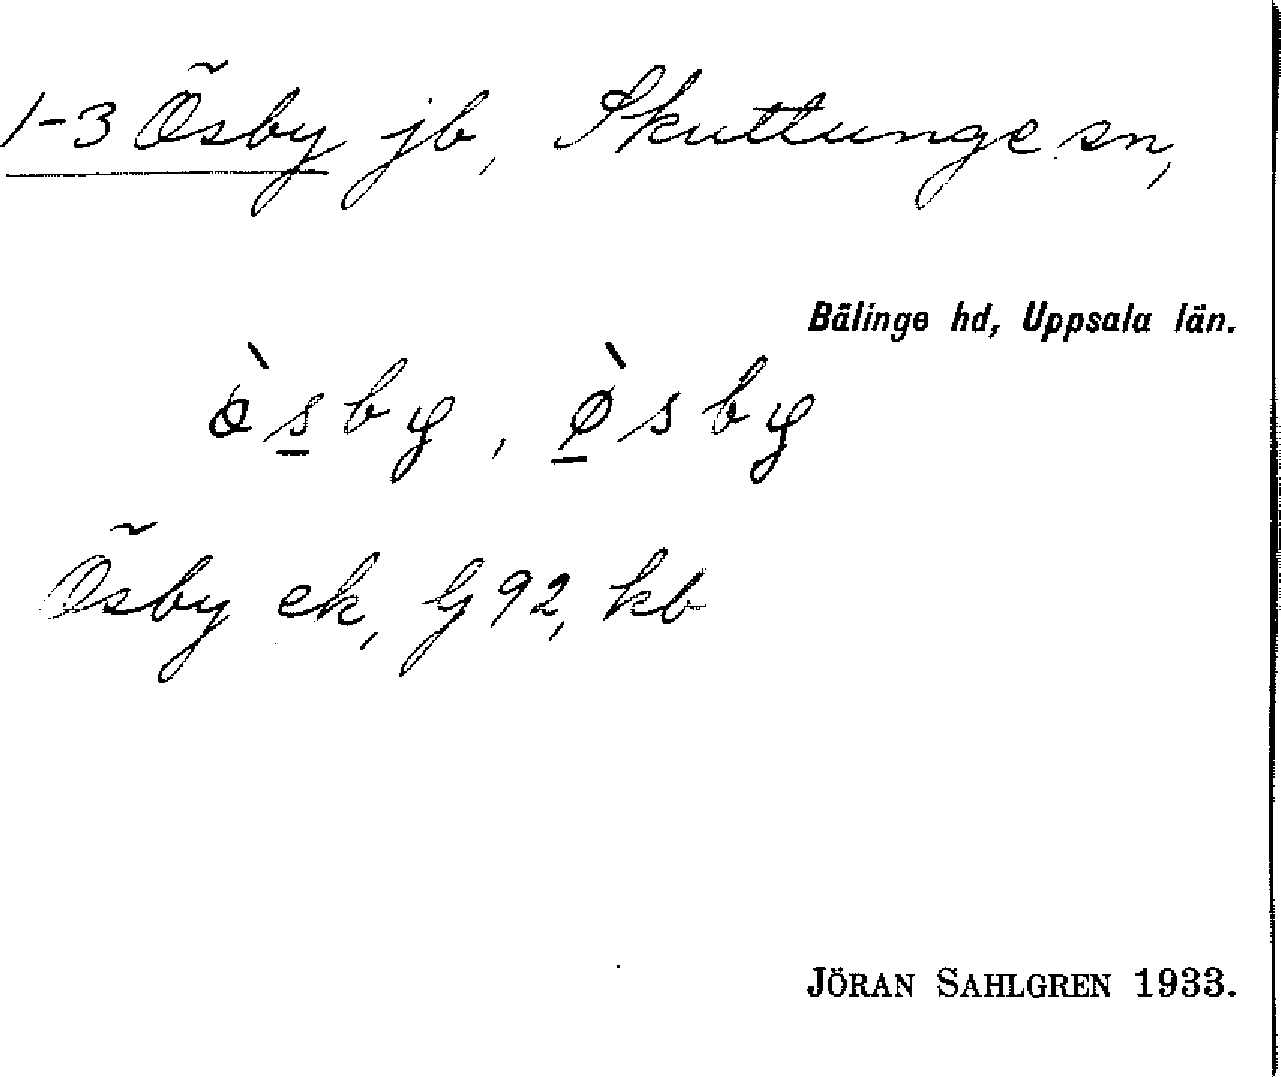 1-3 Ösby jb, Skuttunge sn,
Bälinge hd, Uppsala län.
ö̀sby, ø̀sby
Ösby ek, G 92, kb
JÖRAN SAHLGREN 1933.